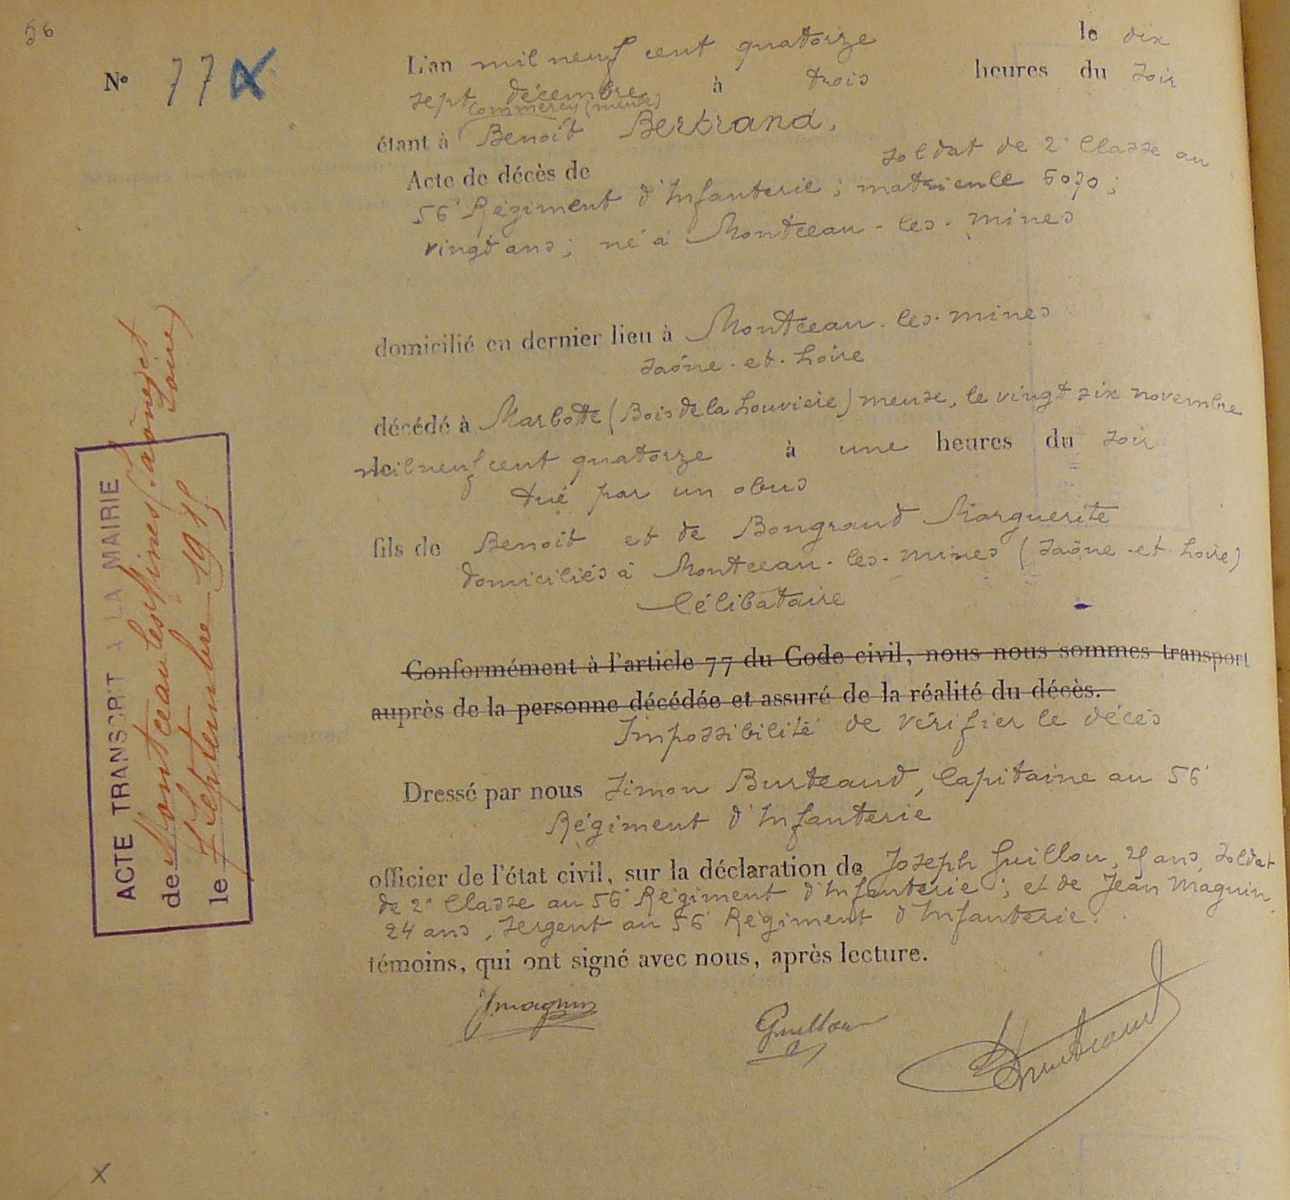 56
N° 77
L'an mil neuf cent quatorze le dix
sept décembre à trois heures du soir
étant à Commercy (meuse)
Benoit Bertrand,
Acte de décès de soldat de 2e Classe au
56e Régiment d'Infanterie ; matricule 6070 ;
vingt ans ; né à Montceau-les-mines
domicilié en dernier lieu à Montceau-les-mines
Saône-et-Loire
décédé à Marbotte (Bois de la Louvière) meuse, le vingt six novembre
mil neuf cent quatorze à une heures du soir
tué par un obus
fils de Benoit et de Bongrand Marguerite
domiciliés à Montceau-les-mines (Saône-et-Loire)
Célibataire
Conformément à l'article 77 du Code civil, nous nous sommes transport
auprès de la personne décédée et assuré de la réalité du décès.
Impossibilité de vérifier le décès
Dressé par nous Simon Burteaud, Capitaine au 56e
Régiment d'Infanterie
officier de l'état civil, sur la déclaration de Joseph Guillou, ans, Soldat
de 2e Classe au 56e Régiment d'Infanterie ; et de Jean Magnin,
24 ans, Sergent au 56e Régiment d'Infanterie.
témoins, qui ont signé avec nous, après lecture.
JMagnin Guillou Burteaud
ACTE TRANSCRIT A LA MAIRIE
de Montceau les Mines (Saône et Loire)
le 7 Septembre 1915
X